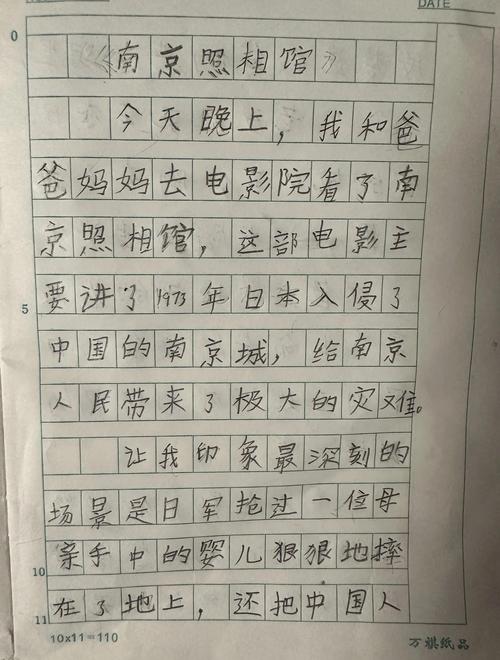 DATE
0
《南京照相馆》
今天晚上，我和爸
爸妈妈去电影院看了南
京照相馆，这部电影主
5 要讲了1973年日本入侵了
中国的南京城，给南京
人民带来了极大的灾难。
让我印象最深刻的
场景是日军抢过一位母
10 亲手中的婴儿狠狠地摔
11 在了地上，还把中国人
10×11=110 万祺纸品